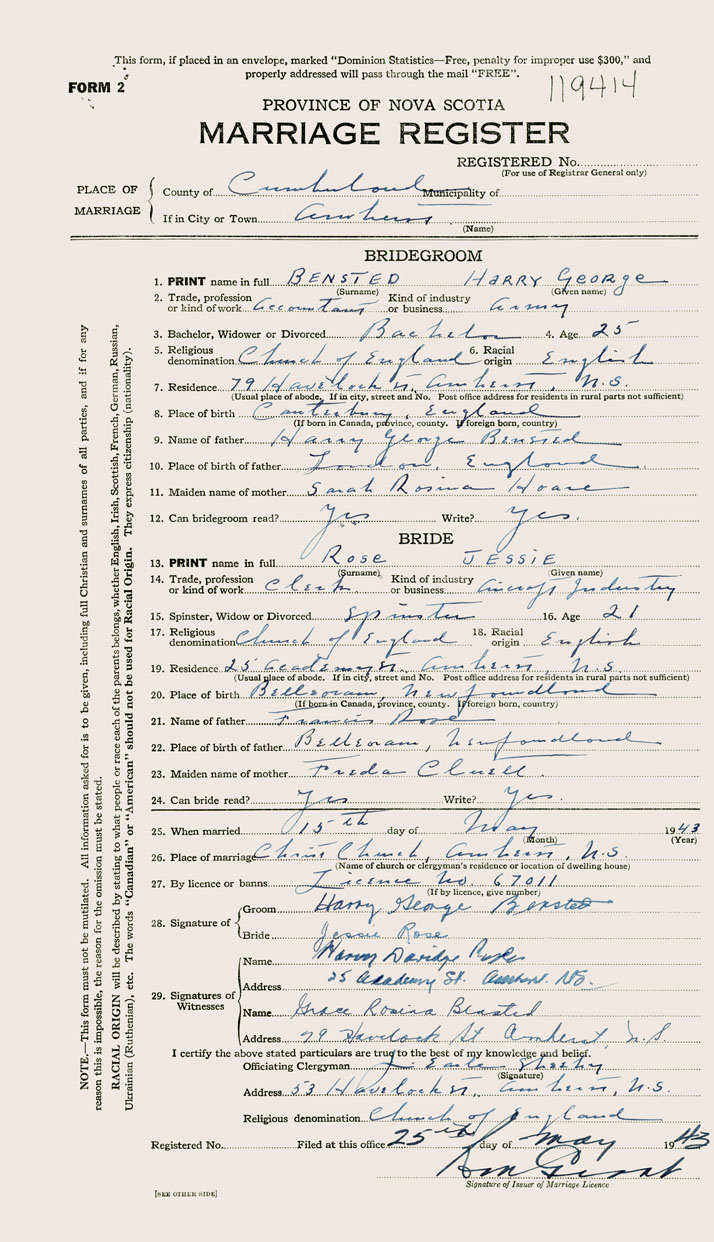 This form, if placed in an envelope, marked "Dominion Statistics—Free, penalty for improper use $300," and
properly addressed will pass through the mail "FREE".
FORM 2
119414
PROVINCE OF NOVA SCOTIA
MARRIAGE REGISTER
REGISTERED No.
(For use of Registrar General only)
PLACE OF MARRIAGE
County of Cumberland Municipality of
If in City or Town Amherst
(Name)
BRIDEGROOM
1. PRINT name in full BENSTED HARRY GEORGE
(Surname) (Given name)
2. Trade, profession or kind of work Accountant Kind of industry or business Army
3. Bachelor, Widower or Divorced Bachelor 4. Age 25
5. Religious denomination Church of England 6. Racial origin English
7. Residence 79 Havelock St, Amherst, N.S.
(Usual place of abode. If in city, street and No. Post office address for residents in rural parts not sufficient)
8. Place of birth Canterbury, England
(If born in Canada, province, county. If foreign born, country)
9. Name of father Harry George Bensted
10. Place of birth of father London, England
11. Maiden name of mother Sarah Rosina Hoare
12. Can bridegroom read? Yes Write? Yes.
BRIDE
13. PRINT name in full ROSE JESSIE
(Surname) (Given name)
14. Trade, profession or kind of work Clerk Kind of industry or business Aircraft Industry
15. Spinster, Widow or Divorced Spinster 16. Age 21
17. Religious denomination Church of England 18. Racial origin English
19. Residence 25 Academy St. Amherst, N.S.
(Usual place of abode. If in city, street and No. Post office address for residents in rural parts not sufficient)
20. Place of birth Belleoram, Newfoundland
(If born in Canada, province, county. If foreign born, country)
21. Name of father Francis Rose
22. Place of birth of father Belleoram, Newfoundland
23. Maiden name of mother Freda Cluett
24. Can bride read? Yes Write? Yes.
25. When married 15th day of May 1943
(Month) (Year)
26. Place of marriage Christ Church, Amherst, N.S.
(Name of church or clergyman's residence or location of dwelling house)
27. By licence or banns Licence No. 67011
(If by licence, give number)
28. Signature of
Groom Harry George Bensted
Bride Jessie Rose
29. Signatures of Witnesses
Name
Address 25 Academy St. Amherst. NS.
Name Grace Rosina Bensted
Address 79 Havelock St Amherst, N.S.
I certify the above stated particulars are true to the best of my knowledge and belief.
Officiating Clergyman J. Earle
(Signature)
Address 53 Havelock St., Amherst, N.S.
Religious denomination Church of England
Registered No. Filed at this office 25th day of May 1943
Signature of Issuer of Marriage Licence
[SEE OTHER SIDE]
NOTE.—This form must not be mutilated. All information asked for is to be given, including full Christian and surnames of all parties, and if for any
reason this is impossible, the reason for the omission must be stated.
RACIAL ORIGIN will be described by stating to what people or race each of the parents belongs, whether English, Irish, Scottish, French, German, Russian,
Ukrainian (Ruthenian), etc. The words "Canadian" or "American" should not be used for Racial Origin. They express citizenship (nationality).